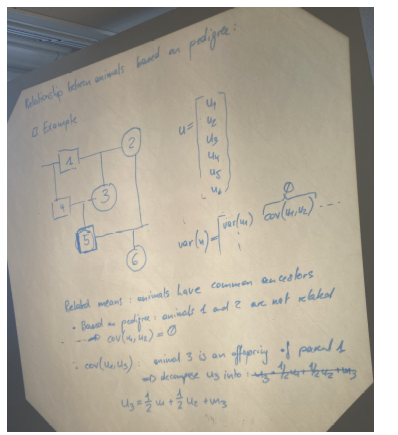 Relationship between animals based on pedigree:
□ Example
1
2
3
4
5
6
u = [u₁
u₂
u₃
u₄
u₅
u₆]
var(u) = [var(u₁) cov(u₁,u₂) ...
∅
Related means: animals have common ancestors
• Based on pedigree: animals 1 and 2 are not related
⇒ cov(u₁,u₂) = ∅
• cov(u₁,u₃): animal 3 is an offspring of parent 1
⇒ decompose u₃ into: u₃ = 1/2 u₁ + 1/2 u₂ + m₃
u₃ = 1/2 u₁ + 1/2 u₂ + m₃